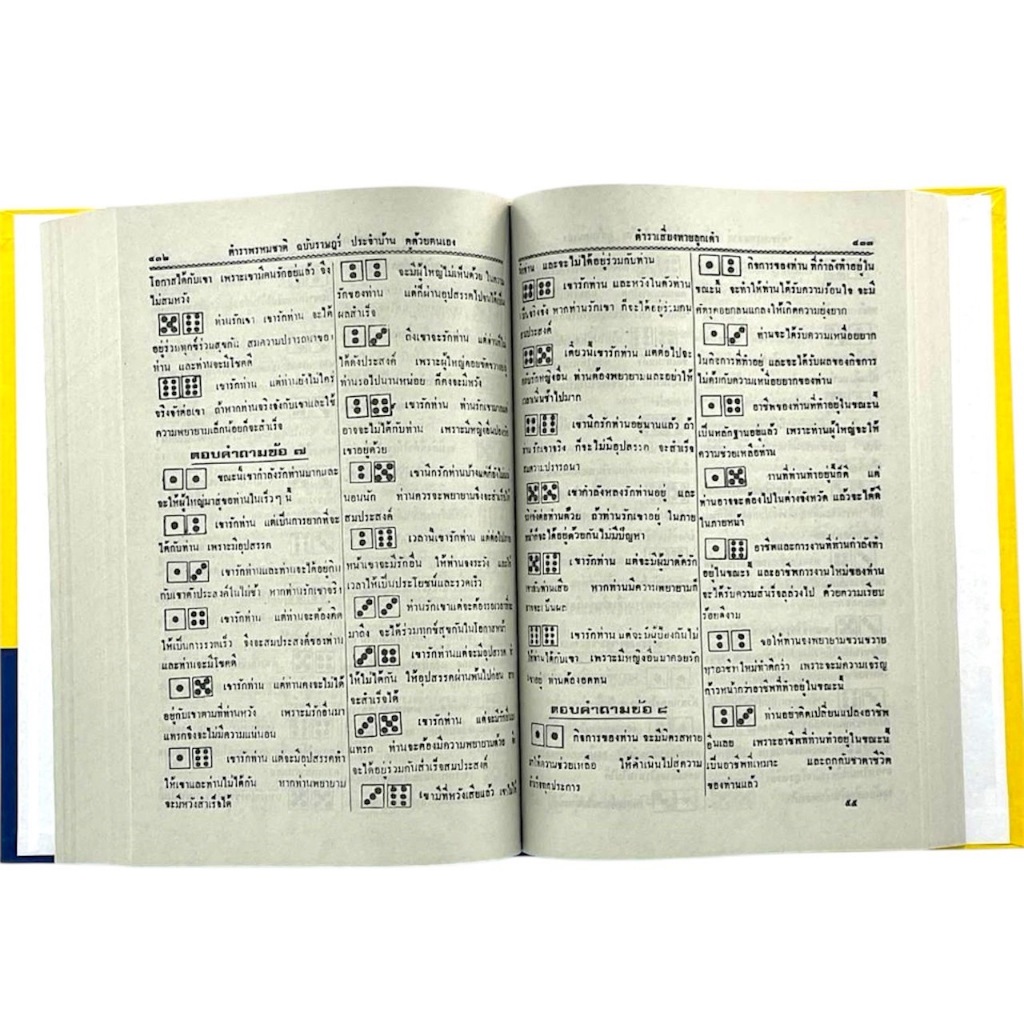 ๔๓๒
ตำราพรหมชาติ ฉบับราษฎร์ ประจำบ้าน ดูด้วยตนเอง
โอกาสได้กับเขา เพราะเขามีคนรักอยู่แล้ว จึง
ไม่สมหวัง
ท่านรักเขา เขารักท่าน จะได้
อยู่ร่วมทุกข์ร่วมสุขกัน สมความปรารถนาของ
ท่าน และท่านจะมีโชคดี
เขารักท่าน แต่ท่านยังไม่ใคร่
จริงจังต่อเขา ถ้าหากท่านจริงจังกับเขาและใช้
ความพยายามเล็กน้อยก็จะสำเร็จ
ตอบคำถามข้อ ๗
ขณะนี้เขากำลังรักท่านมากและ
จะให้ผู้ใหญ่มาสู่ขอท่านในเร็วๆ นี้
เขารักท่าน แต่เป็นการยากที่จะ
ได้กับท่าน เพราะมีอุปสรรค
เขารักท่านและท่านจะได้อยู่กิน
กับเขาดังประสงค์ในไม่ช้า หากท่านรักเขาจริง
เขารักท่าน แต่ท่านจะต้องคิด
ให้เป็นการรวดเร็ว จึงจะสมประสงค์ของท่าน
และท่านจะมีโชคดี
เขารักท่าน แต่ท่านคงจะไม่ได้
อยู่กับเขาตามที่ท่านหวัง เพราะมีรักอื่นมา
แทรกจึงจะไม่มีความแน่นอน
เขารักท่าน แต่จะมีอุปสรรคทำ
ให้เขาและท่านไม่ได้กัน หากท่านพยายาม
จะมีหวังสำเร็จได้
จะมีผู้ใหญ่ไม่เห็นด้วย ในความ
รักของท่าน แต่ก็ผ่านอุปสรรคไปจนได้เป็น
ผลสำเร็จ
ถึงเขาจะรักท่าน แต่ท่านก็ไม่
ได้ดังประสงค์ เพราะผู้ใหญ่คอยขัดขวางอยู่
ท่านรอไปนานหน่อย ก็คงจะมีหวัง
เขารักท่าน ท่านรักเขามาก
อาจจะไม่ได้กับท่าน เพราะมีหญิงอื่น
เขาอยู่ด้วย
เขานึกรักท่านบ้างแต่ก็ยังไม่
นอนนัก ท่านควรจะพยายามจึงจะสำเร็จได้
สมประสงค์
เวลานี้เขารักท่าน แต่ต่อไปภาย
หน้าเขาจะมีรักอื่น ให้ท่านจงระวัง และใช้
เวลาให้เป็นประโยชน์และรวดเร็ว
ท่านรักเขาแต่จะต้องรอเวลาที่จะ
มาถึง จะได้ร่วมทุกข์สุขกันในโอกาสหน้า
เขารักท่านแต่จะมีอุปสรรค ทำ
ให้ไม่ได้กัน ให้อุปสรรคผ่านพ้นไปก่อน
จะสำเร็จได้
เขารักท่าน แต่จะมีรักอื่นมา
แทรก ท่านจะต้องมีความพยายามด้วย
จะได้อยู่ร่วมกันสำเร็จสมประสงค์
เขามีที่หวังเสียแล้ว เขาไม่ได้
ตำราเสี่ยงทายลูกเต๋า
๔๓๓
รักท่าน และจะไม่ได้อยู่ร่วมกับท่าน
เขารักท่าน และหวังในตัวท่าน
เป็นจริงจัง หากท่านรักเขา ก็จะได้อยู่ร่วมกัน
สมประสงค์
เดี๋ยวนี้เขารักท่าน แต่ต่อไปจะ
รักหญิงอื่น ท่านต้องพยายามและอย่าให้
เวลาเนิ่นช้าไปมาก
เขานึกรักท่านอยู่นานแล้ว ถ้า
ท่านรักเขาจริง ก็จะไม่มีอุปสรรค จะสำเร็จ
สมความปรารถนา
เขากำลังหลงรักท่านอยู่ และ
จริงจังต่อท่านด้วย ถ้าท่านรักเขาอยู่ ในภาย
หน้าก็จะได้อยู่ด้วยกันไม่มีปัญหา
เขารักท่าน แต่จะมีผู้มาตัดรัก
เขากับท่านเสีย หากท่านมีความพยายามก็
อาจจะเป็นผล
เขารักท่าน แต่จะมีผู้ป้องกันไม่
ให้ท่านได้กับเขา เพราะมีหญิงอื่นมาคอยรัก
เขาอยู่ ท่านต้องอดทน
ตอบคำถามข้อ ๘
กิจการของท่าน จะมีมิตรสหาย
มาให้ความช่วยเหลือ ให้ดำเนินไปสู่ความ
สำเร็จทุกประการ
กิจการของท่าน ที่กำลังทำอยู่ใน
ขณะนี้ จะทำให้ท่านได้รับความร้อนใจ จะมี
ศัตรูคอยกลั่นแกล้งให้เกิดความยุ่งยาก
ท่านจะได้รับความเหนื่อยยาก
ในกิจการที่ทำอยู่ และจะได้รับผลของกิจการ
ไม่คุ้มกับความเหนื่อยยากของท่าน
อาชีพของท่านที่ทำอยู่ในขณะนี้
เป็นหลักฐานอยู่แล้ว เพราะท่านผู้ใหญ่จะให้
ความช่วยเหลือท่าน
งานที่ท่านทำอยู่นี้ก็ดี แต่
ท่านอาจจะต้องไปในต่างจังหวัด แล้วจะได้ดี
ในภายหน้า
อาชีพและการงานที่ท่านกำลังทำ
อยู่ในขณะนี้ และอาชีพการงานใหม่ของท่าน
จะได้รับความสำเร็จลุล่วงไป ด้วยความเรียบ
ร้อยดีงาม
ขอให้ท่านจงพยายามขวนขวาย
หาอาชีพใหม่ทำดีกว่า เพราะจะมีความเจริญ
ก้าวหน้ากว่าอาชีพที่ทำอยู่ในขณะนี้
ท่านอย่าคิดเปลี่ยนแปลงอาชีพ
อื่นเลย เพราะอาชีพที่ท่านทำอยู่ในขณะนี้
เป็นอาชีพที่เหมาะ และถูกกับชาตาชีวิต
ของท่านแล้ว
๕๕